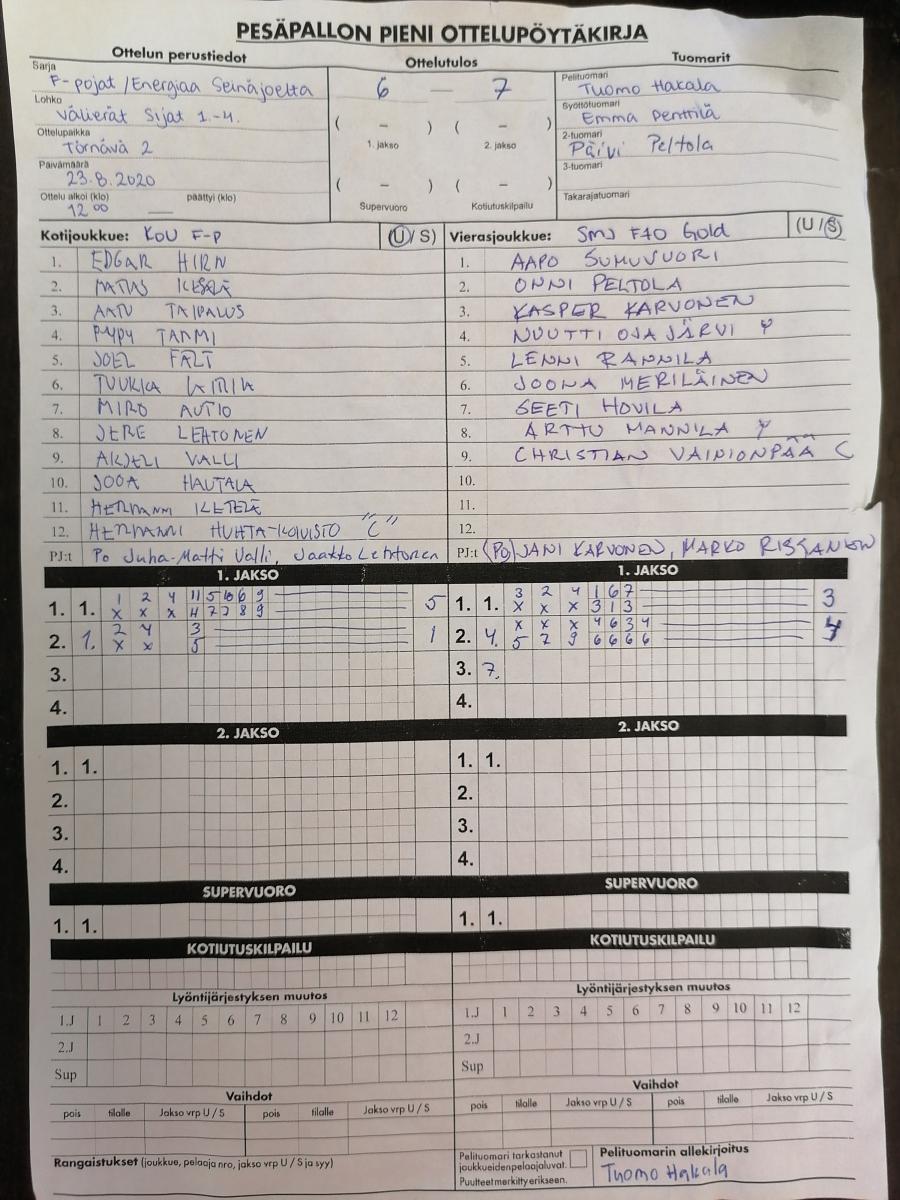 PESÄPALLON PIENI OTTELUPÖYTÄKIRJA
Ottelun perustiedot
Ottelutulos
Tuomarit
Sarja
F-pojat / Energiaa Seinäjoelta
Lohko
Välierät Sijat 1.-4.
Ottelupaikka
Törnävä 2
Päivämäärä
23.8.2020
Ottelu alkoi (klo) päättyi (klo)
12 00 —
6 — 7
( – ) ( – )
1. jakso 2. jakso
( – ) ( – )
Supervuoro Kotiutuskilpailu
Pelituomari
Tuomo Hakala
Syöttötuomari
Emma Penttilä
2-tuomari
Päivi Peltola
3-tuomari
Takarajatuomari
Kotijoukkue: KoU F-P (U/S)
1. EDGAR HIRN
2.
3. AATU TAIPALUS
4. TAMMI
5. JOEL FÄLT
6. TUUKKA
7. MIRO AUTIO
8. JERE LEHTONEN
9. AKSELI VALLI
10. JOOA HAUTALA
11. HERMANNI
12. HERMANNI HUHTA-KOIVISTO "C"
PJ:t Po Juha-Matti Valli, Jaakko Lehtonen
Vierasjoukkue: SMJ F40 Gold (U/S)
1. AAPO SUMUVUORI
2. ONNI PELTOLA
3. KASPER KARVONEN
4. NUUTTI OJAJÄRVI
5. LENNI RANNILA
6. JOONA MERILÄINEN
7. SEETI HOVILA
8. ARTTU MANNILA
9. CHRISTIAN VAINIONPÄÄ C
10.
11.
12.
PJ:t (PO) JANI KARVONEN, MARKO RISSANEN
1. JAKSO
1 2 4 11 5 10 6 9
1. 1. x x x 4 7 2 8 9 5
2 4 3
2. 1. x x 5 1
3.
4.
1. JAKSO
3 2 4 1 6 7
1. 1. x x x 3 1 3 3
x x x 4 6 3 4
2. 4. 5 2 9 6 6 6 6 4
3. 7.
4.
2. JAKSO
1. 1.
2.
3.
4.
2. JAKSO
1. 1.
2.
3.
4.
SUPERVUORO
1. 1.
SUPERVUORO
1. 1.
KOTIUTUSKILPAILU
KOTIUTUSKILPAILU
Lyöntijärjestyksen muutos
1.J 1 2 3 4 5 6 7 8 9 10 11 12
2.J
Sup
Lyöntijärjestyksen muutos
1.J 1 2 3 4 5 6 7 8 9 10 11 12
2.J
Sup
Vaihdot
pois tilalle Jakso vrp U / S pois tilalle Jakso vrp U / S
Vaihdot
pois tilalle Jakso vrp U / S pois tilalle Jakso vrp U / S
Rangaistukset (joukkue, pelaaja nro, jakso vrp U / S ja syy)
Pelituomari tarkastanut
joukkueidenpelaajaluvat.
Puutteet merkitty erikseen.
Pelituomarin allekirjoitus
Tuomo Hakala